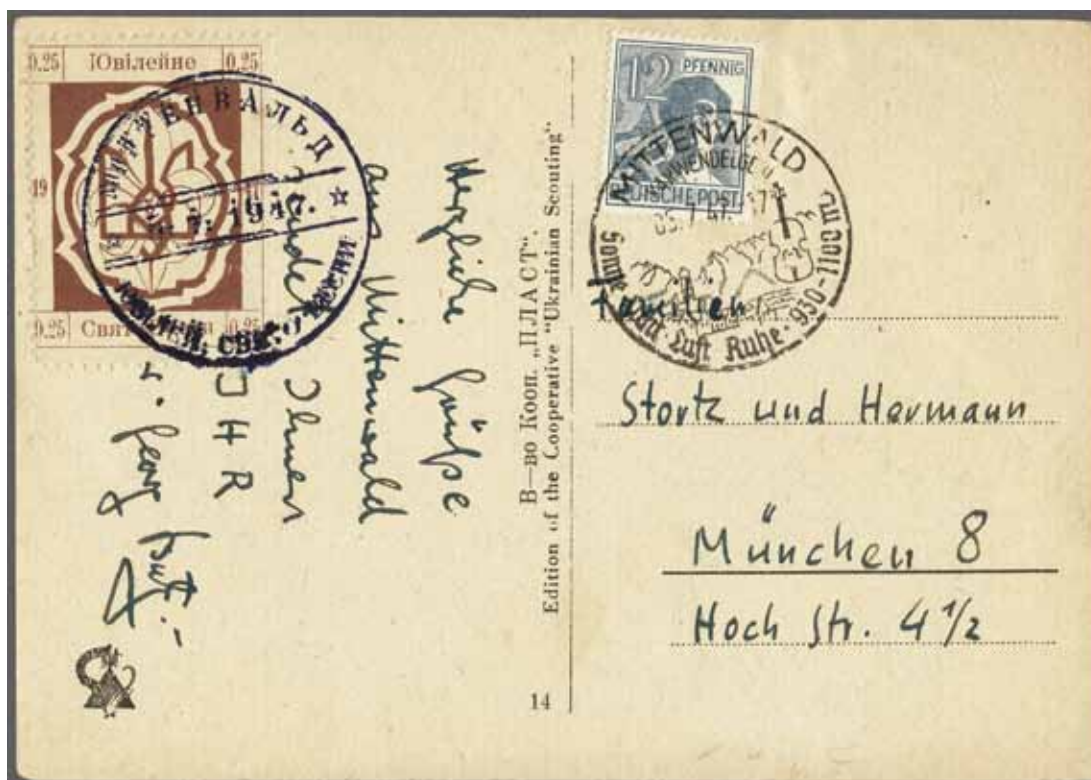 0.25 Ювілейне 0.25
МІТТЕНВАЛЬД
19
1947.
0.25 0.25
Herzliche Grüße
aus Mittenwald
sendet Ihnen
IHR
Georg
В—во Кооп. „ПЛАСТ".
Edition of the Cooperative "Ukrainian Scouting"
14
12 PFENNIG
DEUTSCHE POST
MITTENWALD
KARWENDELGEB.
Luft Ruhe · 930-1100 m
Familien
Stortz und Hermann
München 8
Hoch Str. 4 1/2